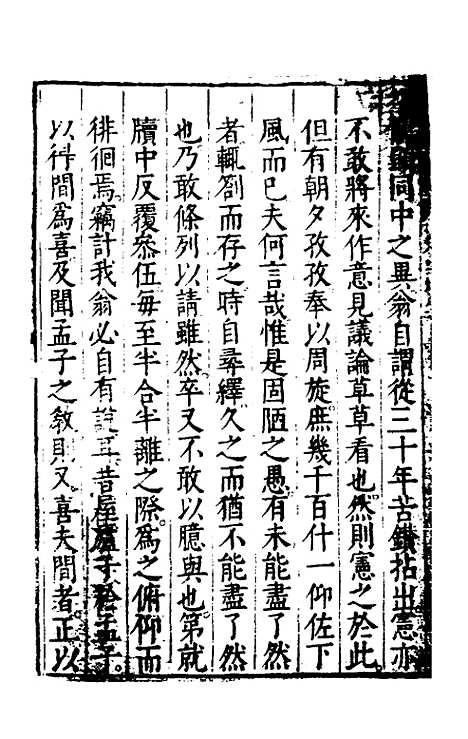 同中之異翁自謂從三十年苦鑽拈出憲亦
不敢將來作意見議論草草看也然則憲之於此
但有朝夕孜孜奉以周旋庶幾千百什一仰佐下
風而已夫何言哉惟是固陋之愚有未能盡了然
者輒劄而存之時自尋繹久之而猶不能盡了然
也乃敢條列以請雖然卒又不敢以臆與也第就
牘中反覆叅伍每至半合半離之際爲之俯仰而
徘徊焉竊計我翁必自有說耳昔屋廬子於孟子
以得間爲喜及聞孟子之敎則又喜夫間者正以